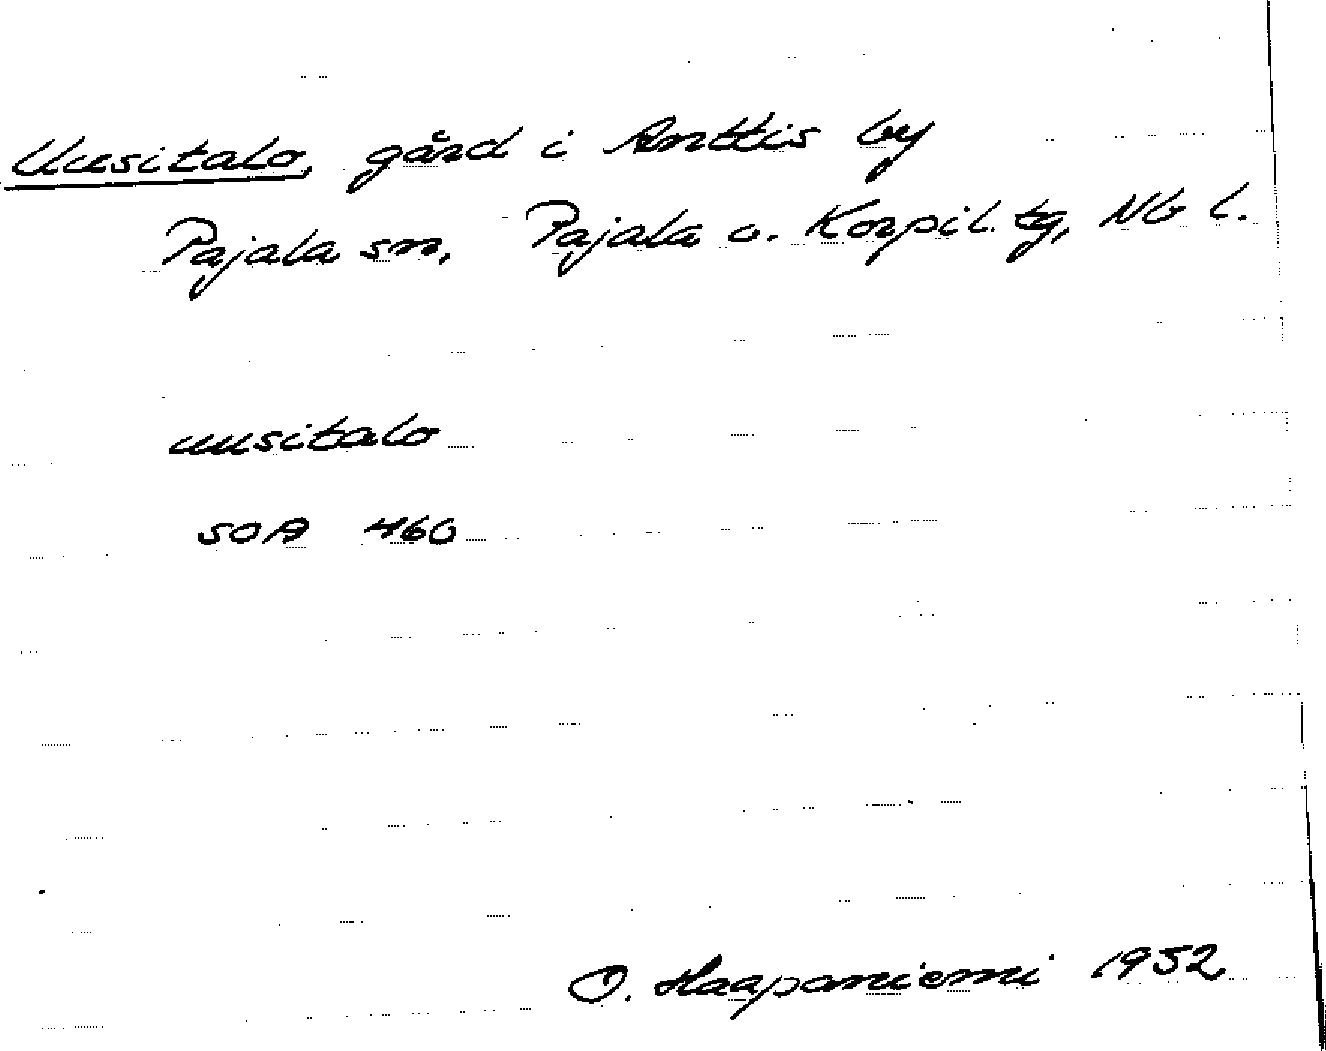 Uusitalo, gård i Anttis by
Pajala sn, Pajala o. Korpil. tg, Nb l.
uusitalo
SOA 460
O. Haapaniemi 1952